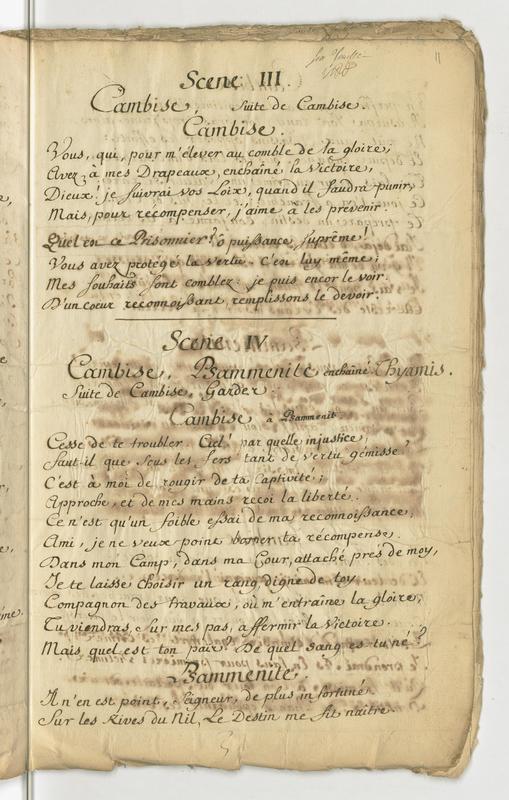 11
Scene III.
Cambise, Suite de Cambise.
Cambise.
Vous, qui, pour m'élever au comble de la gloire,
Avez, à mes Drapeaux, enchaîné la Victoire,
Dieux! je suivrai vos Loix, quand il faudra punir,
Mais, pour récompenser, j'aime à les prévenir.
Quel est ce Prisonnier? ô puissance suprême!
Vous avez protégé la vertu. c'est luy même;
Mes souhaits sont comblez: je puis encor le voir.
D'un coeur réconnoissant, remplissons le devoir.
Scene IV
Cambise, Psammenite enchaîné Thyamis.
Suite de Cambise, Gardes.
Cambise à Psammenit
Cesse de te troubler. Ciel! par quelle injustice,
Faut-il que sous les fers tant de vertu gémisse?
C'est à moi de rougir de ta captivité;
Approche, et de mes mains recoi la liberté.
Ce n'est qu'un foible essai de ma reconnoissance,
Ami, je ne veux point borner ta récompense.
Dans mon Camp, dans ma Cour, attaché près de moy,
Je te laisse choisir un rang digne de toy.
Compagnon des travaux, où m'entraîne la gloire,
Tu viendras, sur mes pas, affermir la Victoire.
Mais quel est ton païs? De quel sang es-tu né?
Psammenite.
Il n'en est point, Seigneur, de plus infortuné
Sur les Rives du Nil, Le Destin me fit naître